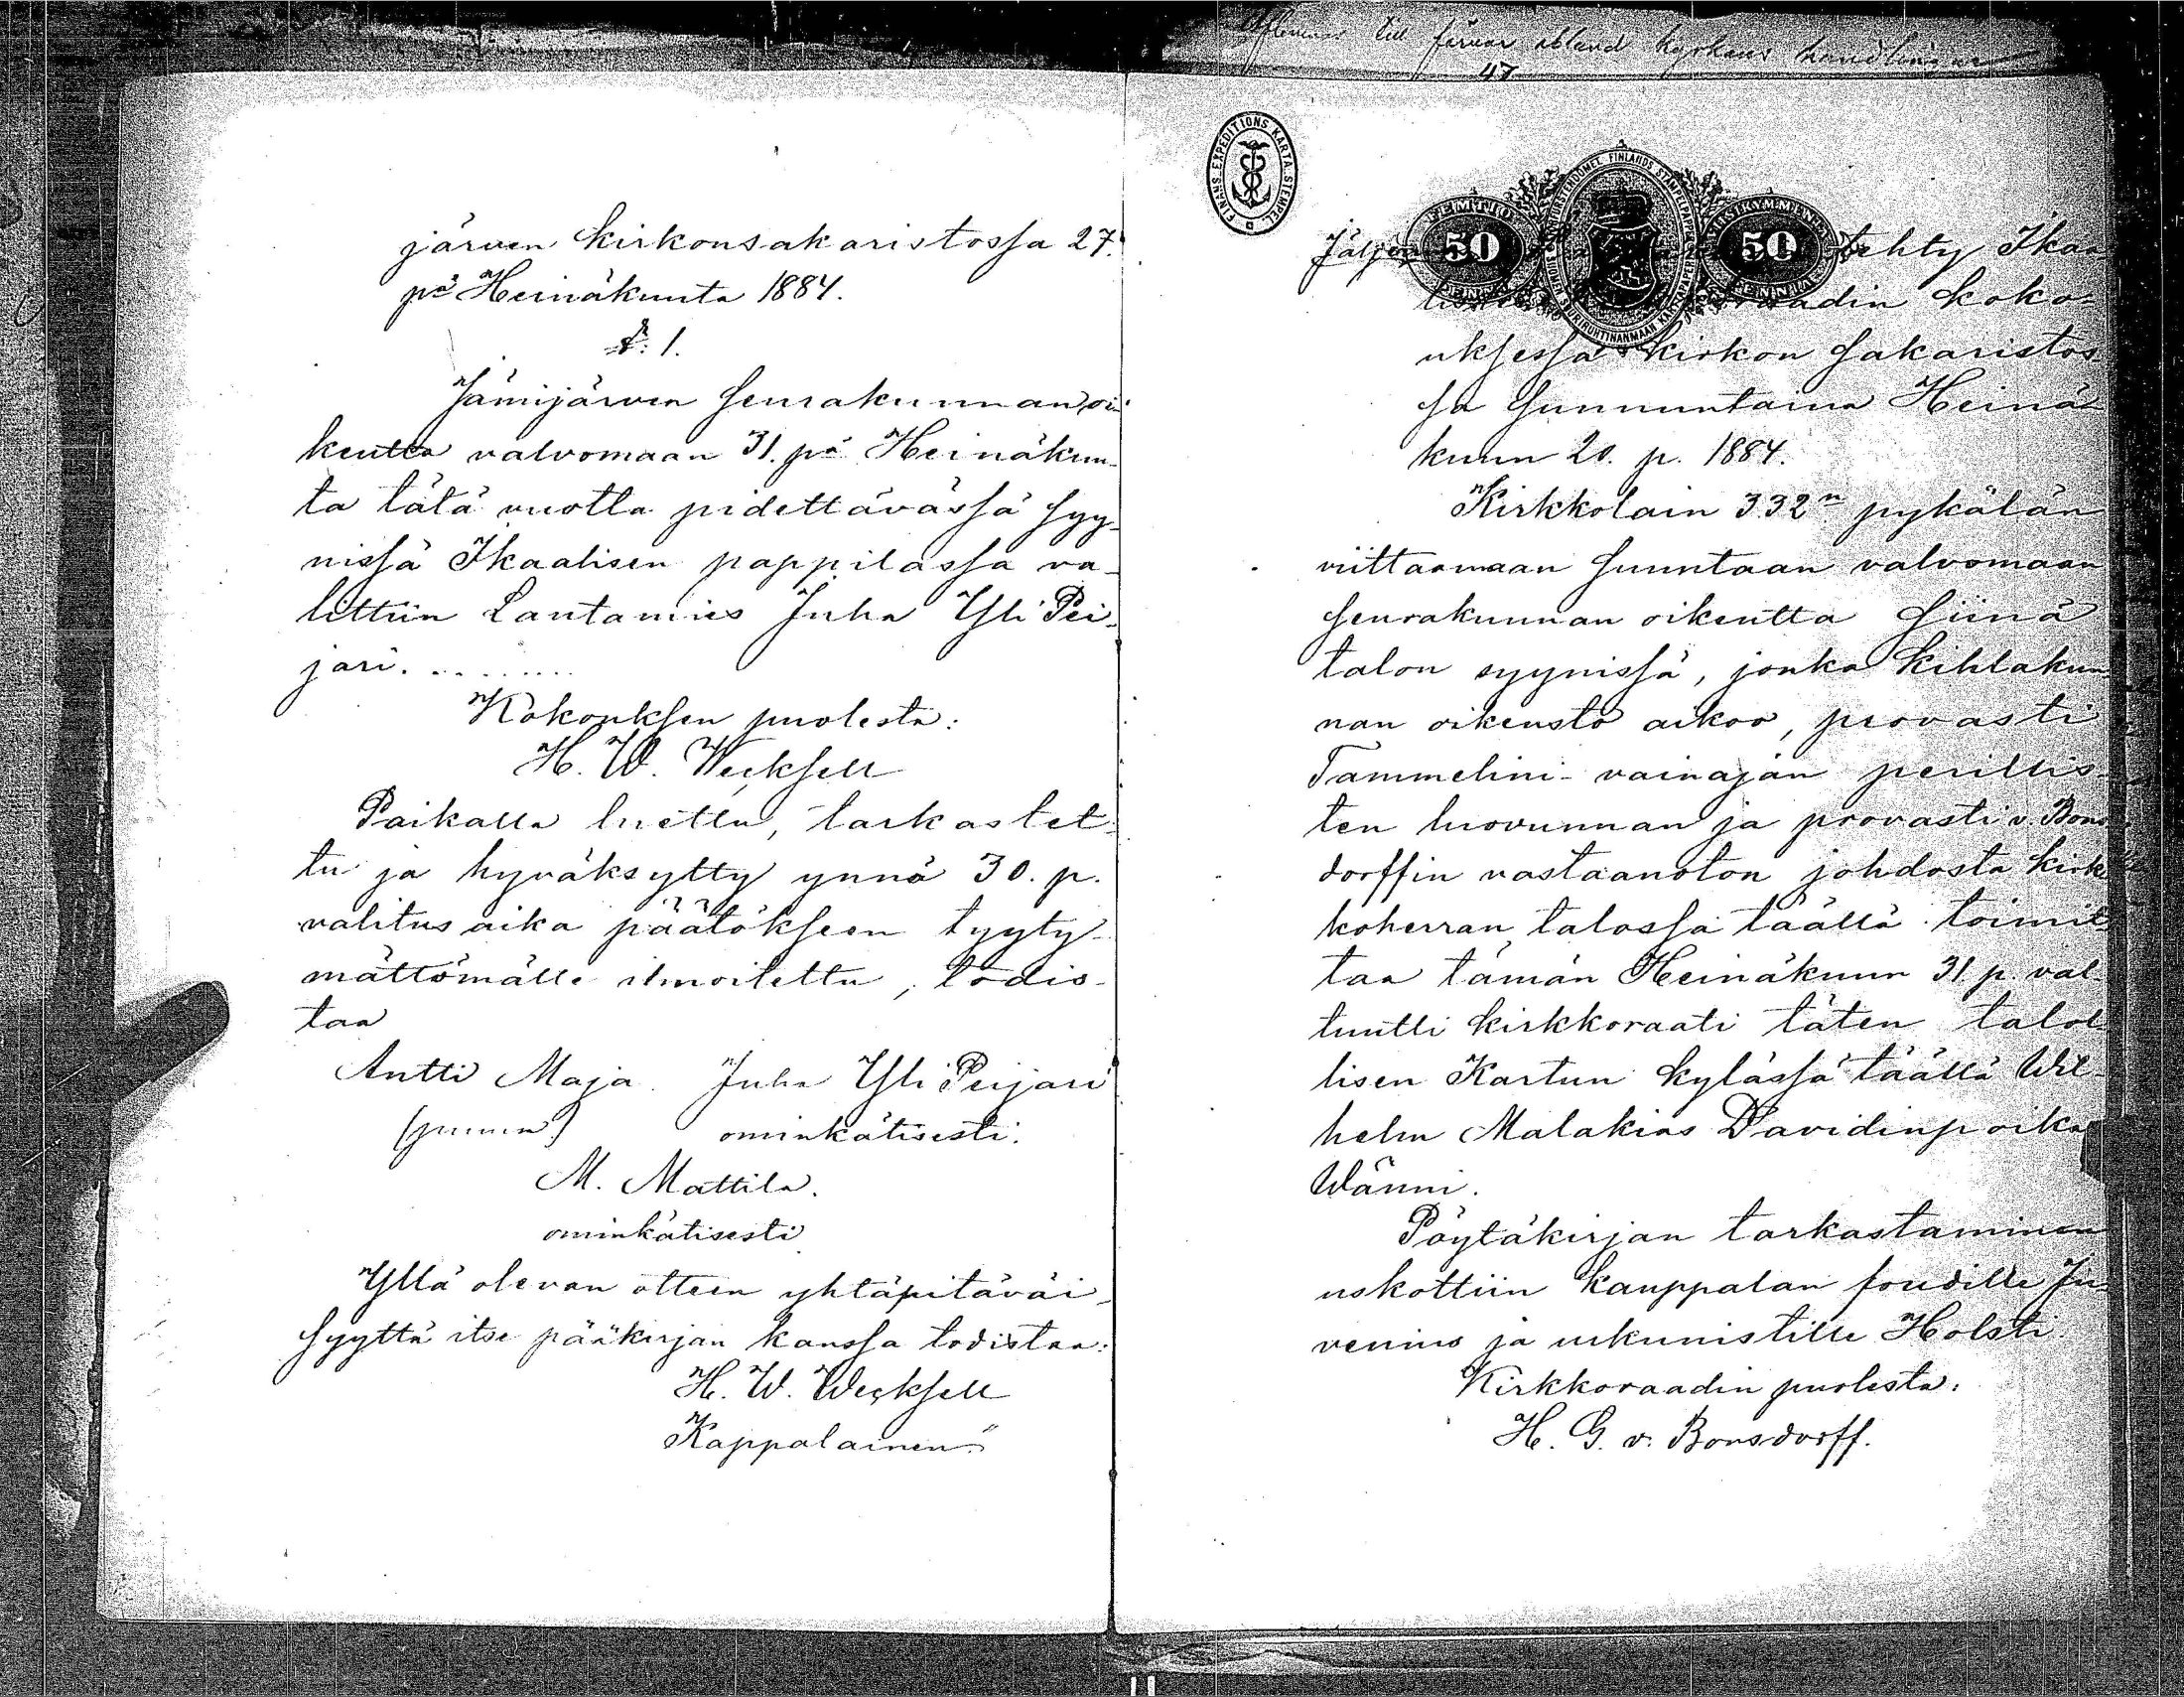 järven kirkonsakaristossa 27.
pä Heinäkuuta 1884.
§. 1.
Jämijärven seurakunnan oi-
keutta valvomaan 31. pä Heinäkuu-
ta tätä vuotta pidettävässä syy-
nissä Ikaalisen pappilassa va-
littiin Lautamies Juha Yli Pei-
jari. ........
Kokouksen puolesta:
H. W. Wecksell
Paikalla luettu, tarkastet-
tu ja hyväksytty ynnä 30. p.
valitus aika päätökseen tyyty-
mättömälle ilmoitettu, todis-
taa
Antti Maja. Juha Yli Peijari
(puum.) ominkätisesti.
M. Mattila.
ominkätisesti
Yllä olevan otteen yhtäpitäväi-
syyttä itse pääkirjan kanssa todistaa:
H. W. Wecksell
Kappalainen."
till förvar ibland kyrkans handlingar
47
FINANS-EXPEDITIONS KARTA STEMPEL
FEMTIO 50 PENNI
FINLANDS STÄMPELPAPPER
50 VIISIKYMMENTÄ PENNIÄ
tehty Ikaa
koko-
uksessa kirkon sakaristos-
sa sunnuntaina Heinä-
kuun 20. p. 1884.
Kirkkolain 332n pykälän
viittaamaan suuntaan valvomaan
seurakunnan oikeutta siinä
talon syynissä, jonka kihlakun-
nan oikeusto aikoo, provasti
Tammelini-vainajan perillis-
ten luovunnan ja provasti v. Bons-
dorffin vastaanoton johdosta kirk-
koherran talossa täällä toimit-
taa tämän Heinäkuun 31. p. val-
tuutti kirkkoraati täten talol-
lisen Kartun kylässä täällä Wil-
helm Malakias Davidinpoika
Wänni.
Pöytäkirjan tarkastaminen
uskottiin kauppalan foudille Ju-
venius ja urkunistille Holsti
Kirkkoraadin puolesta:
H. G. v. Bonsdorff.